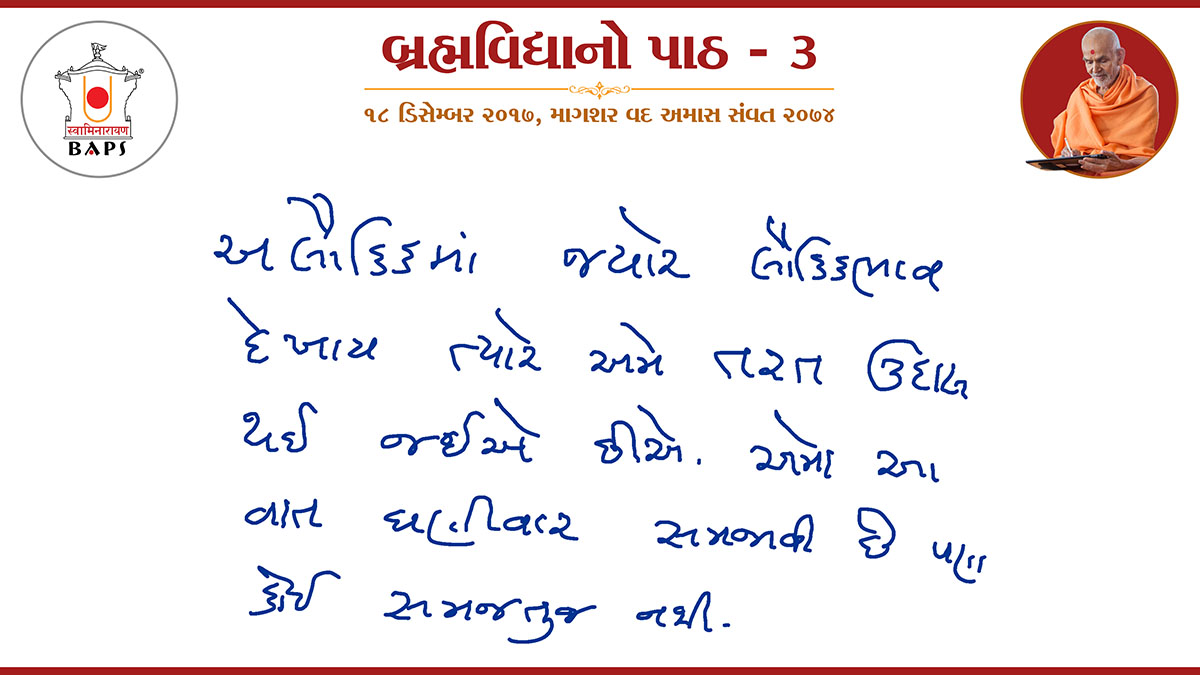 બ્રહ્મવિદ્યાનો પાઠ - ૩
૧૮ ડિસેમ્બર ૨૦૧૭, માગશર વદ અમાસ સંવત ૨૦૭૪
स्वामिनारायण
BAPS
અલૌકિકમાં જ્યારે લૌકિકભાવ
દેખાય ત્યારે અમે તરત ઉદાસ
થઈ જઈએ છીએ. અમે આ
વાત ઘણીવાર સમજાવી છે પણ
કોઈ સમજતુજ નથી.